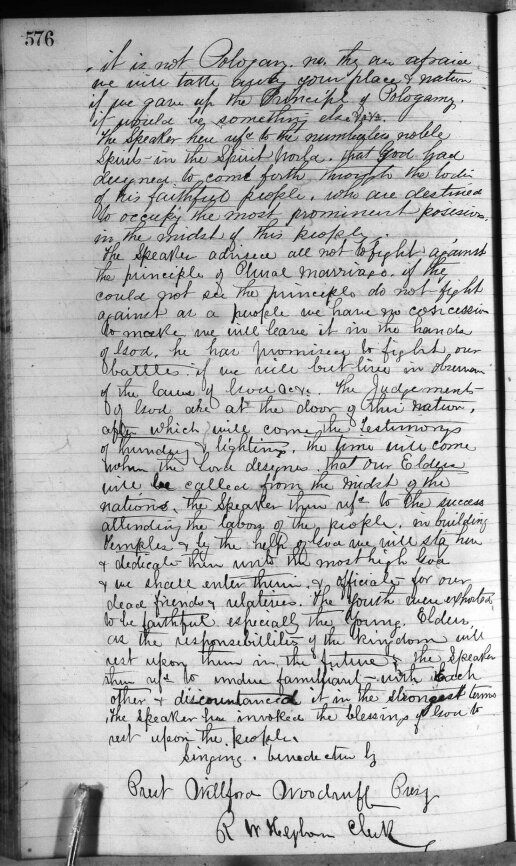 576
it is not Pologamy. no. thy are afraid
we will take away your place & nation
if we gave up the Principl of Pologamy.
it would be something else &c&c.
The Speaker here refd to the numberless noble
Spirits in the Spirit World. that God had
designed to come forth through the lodi
of his faithful people. who are destined
to occupy the most prominent posission,
in the midst of this people.
The Speaker advised all not to fight against
the principle of Plural marriage. if they
could not see the principle do not fight
against as a people we have no concession
to make we will leave it in the hands
of God. he has promised to fight our
battles. if we will but live in
of the laws of God &c&c. The Judgements
of God are at the door of this nation,
after which will come the Testimonys
of thunders & lighting. the time will come
when the Lord designes that our Elders
will be called from the midst of the
nations. the Speaker then refd to the success
attending the labors of the people. in building
Temples & by the help of God we will
& dedicate them unto the most high God
& we shall enter them. & officiate for our
dead friends & relatives. The youth were exhorted
to be faithful especially the Young Elders,
as the responsibilities of the kingdom will
rest upon them in the future & the Speaker
then refd to undue familiarity with Each
other & discountanced it in the strongest terms
The Speaker here invoked the blessings of God to
rest upon the people.
Singing. benediction by
Prest Willford Woodruff Presg
R W Heyborn Clerk